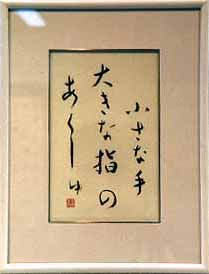 小さな手
大きな指の
あくしゅ